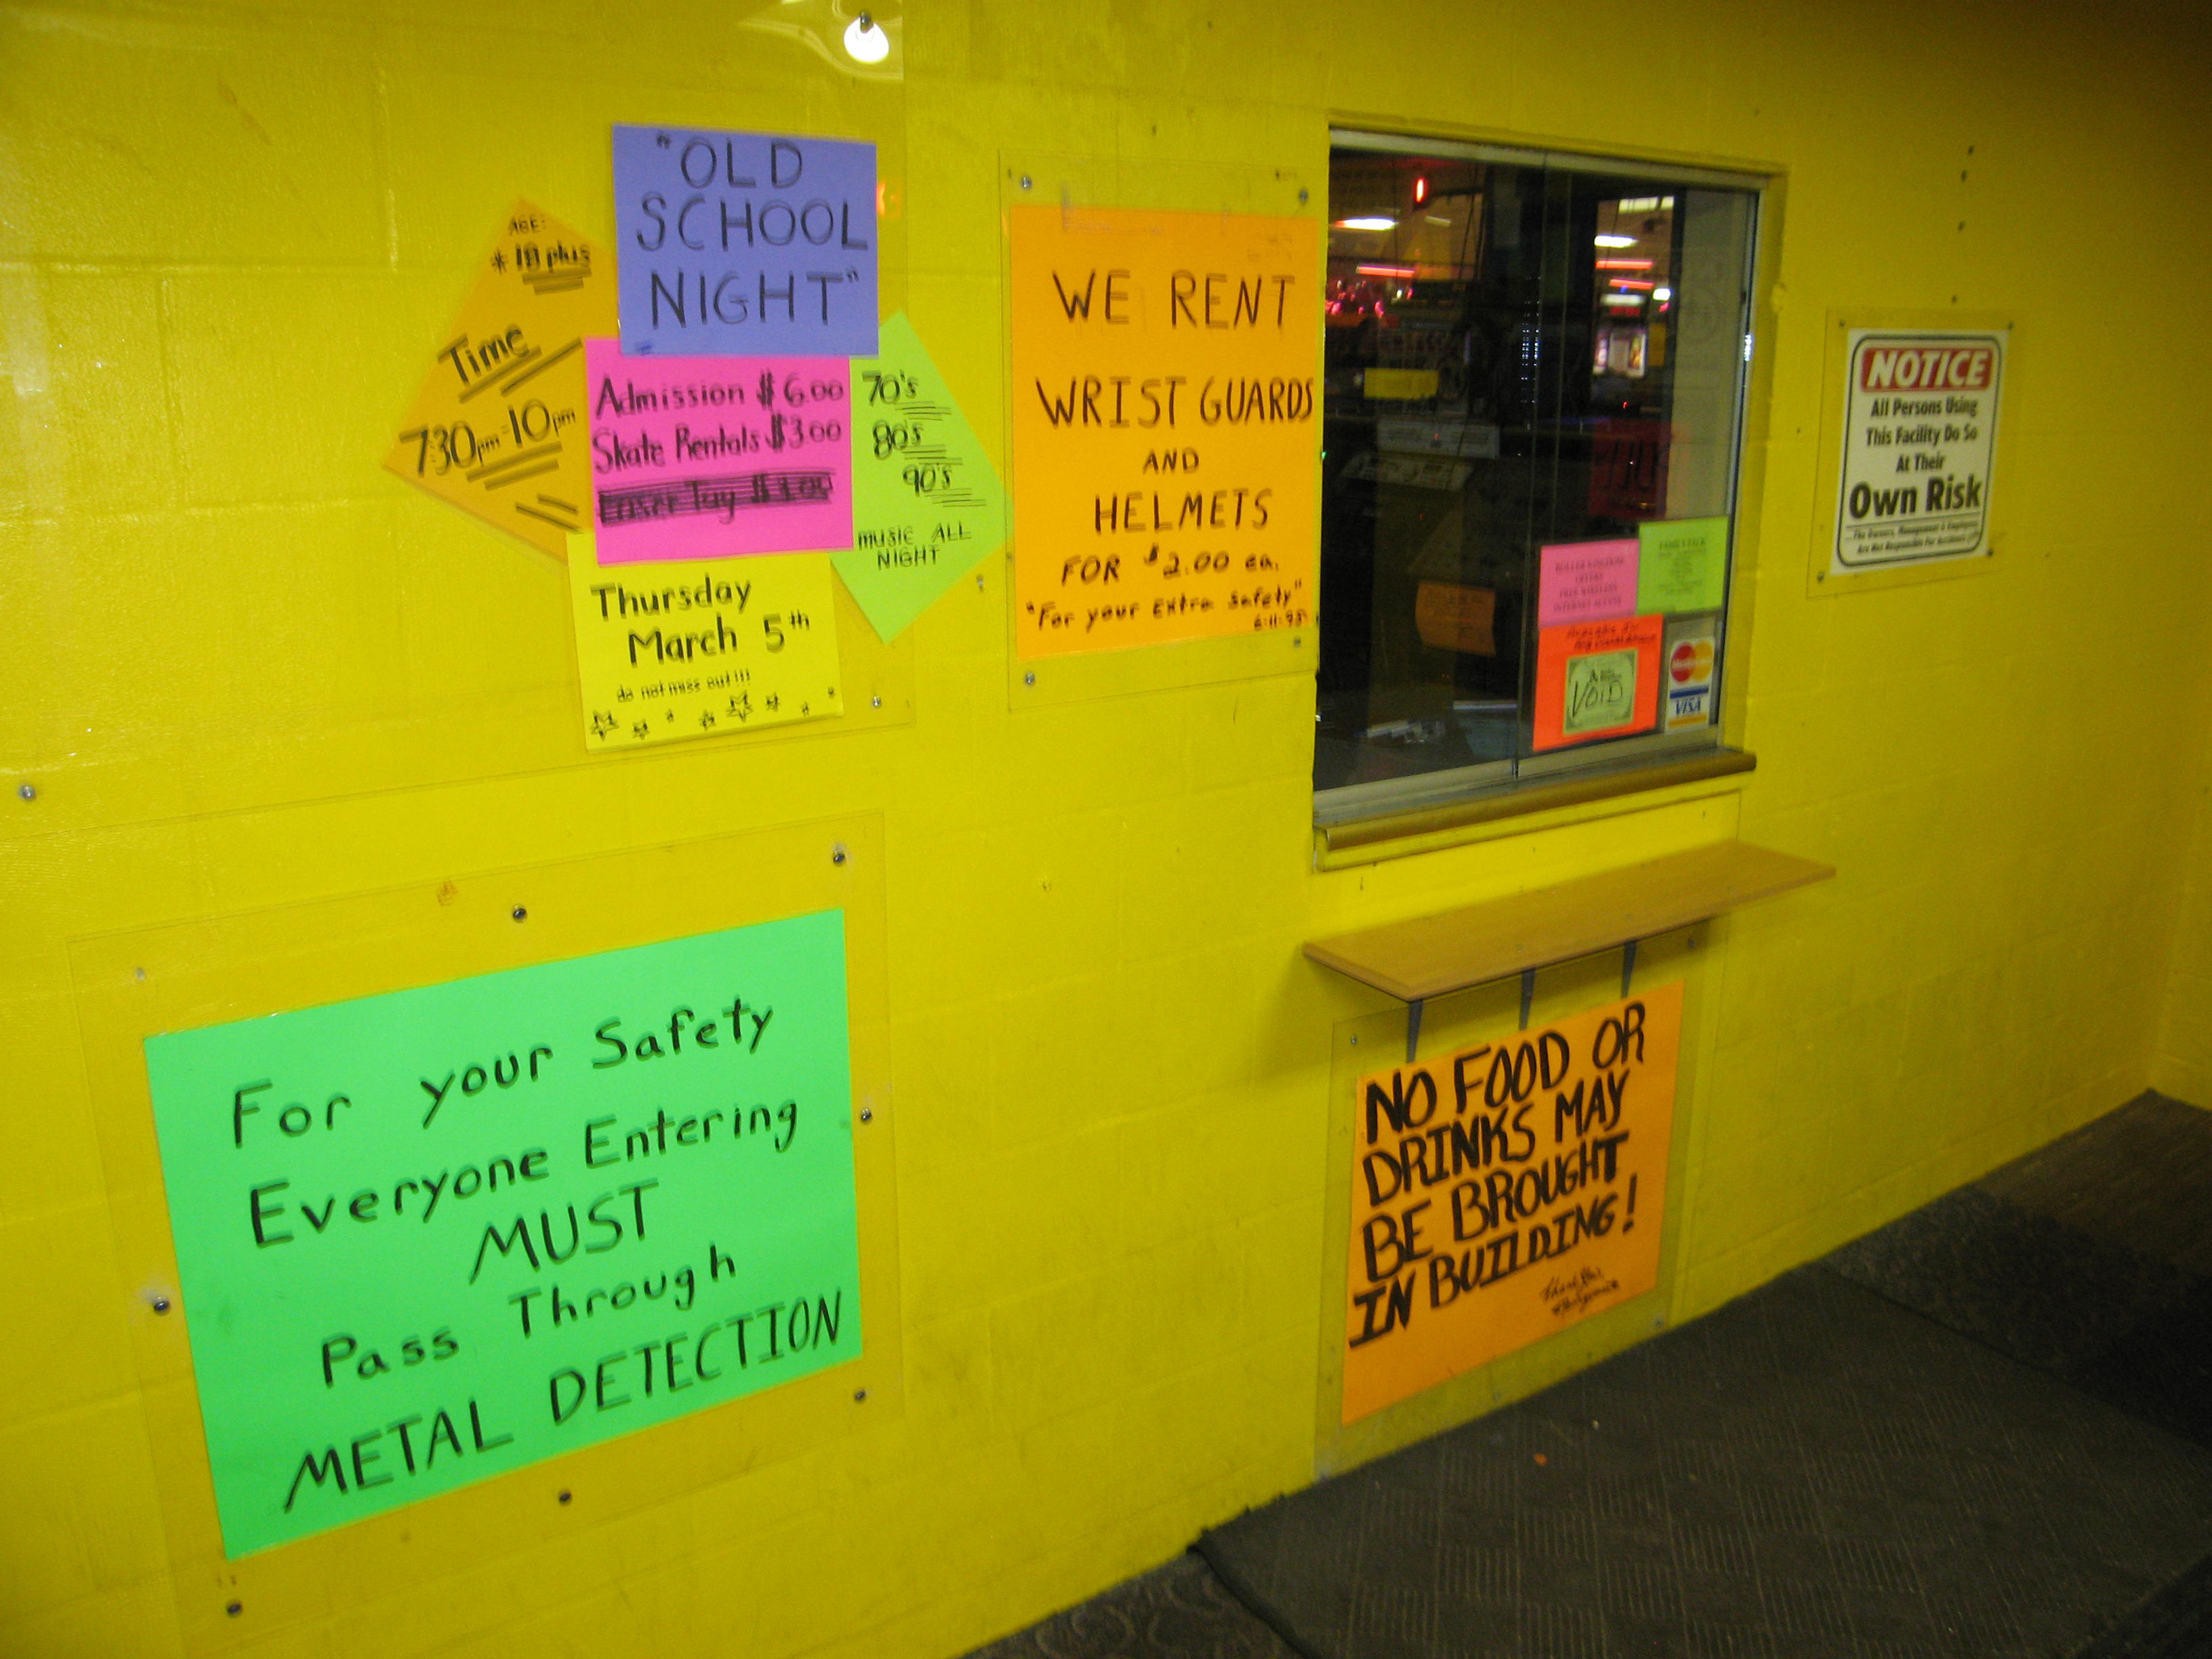 "OLD
SCHOOL
NIGHT"
AGE:
* 18 plus
Time
7:30pm-10pm
Admission $6.00
Skate Rentals $3.00
Laser Tag $3.00
70's
80's
90's
music ALL
NIGHT
Thursday
March 5th
do not miss out!!!
WE RENT
WRIST GUARDS
AND
HELMETS
FOR $2.00 ea.
"For your Extra Safety"
VOID
MasterCard
VISA
NOTICE
All Persons Using
This Facility Do So
At Their
Own Risk
The Owners, Management & Employees
Are Not Responsible For Accidents
For your Safety
Everyone Entering
MUST
Pass Through
METAL DETECTION
NO FOOD OR
DRINKS MAY
BE BROUGHT
IN BUILDING!